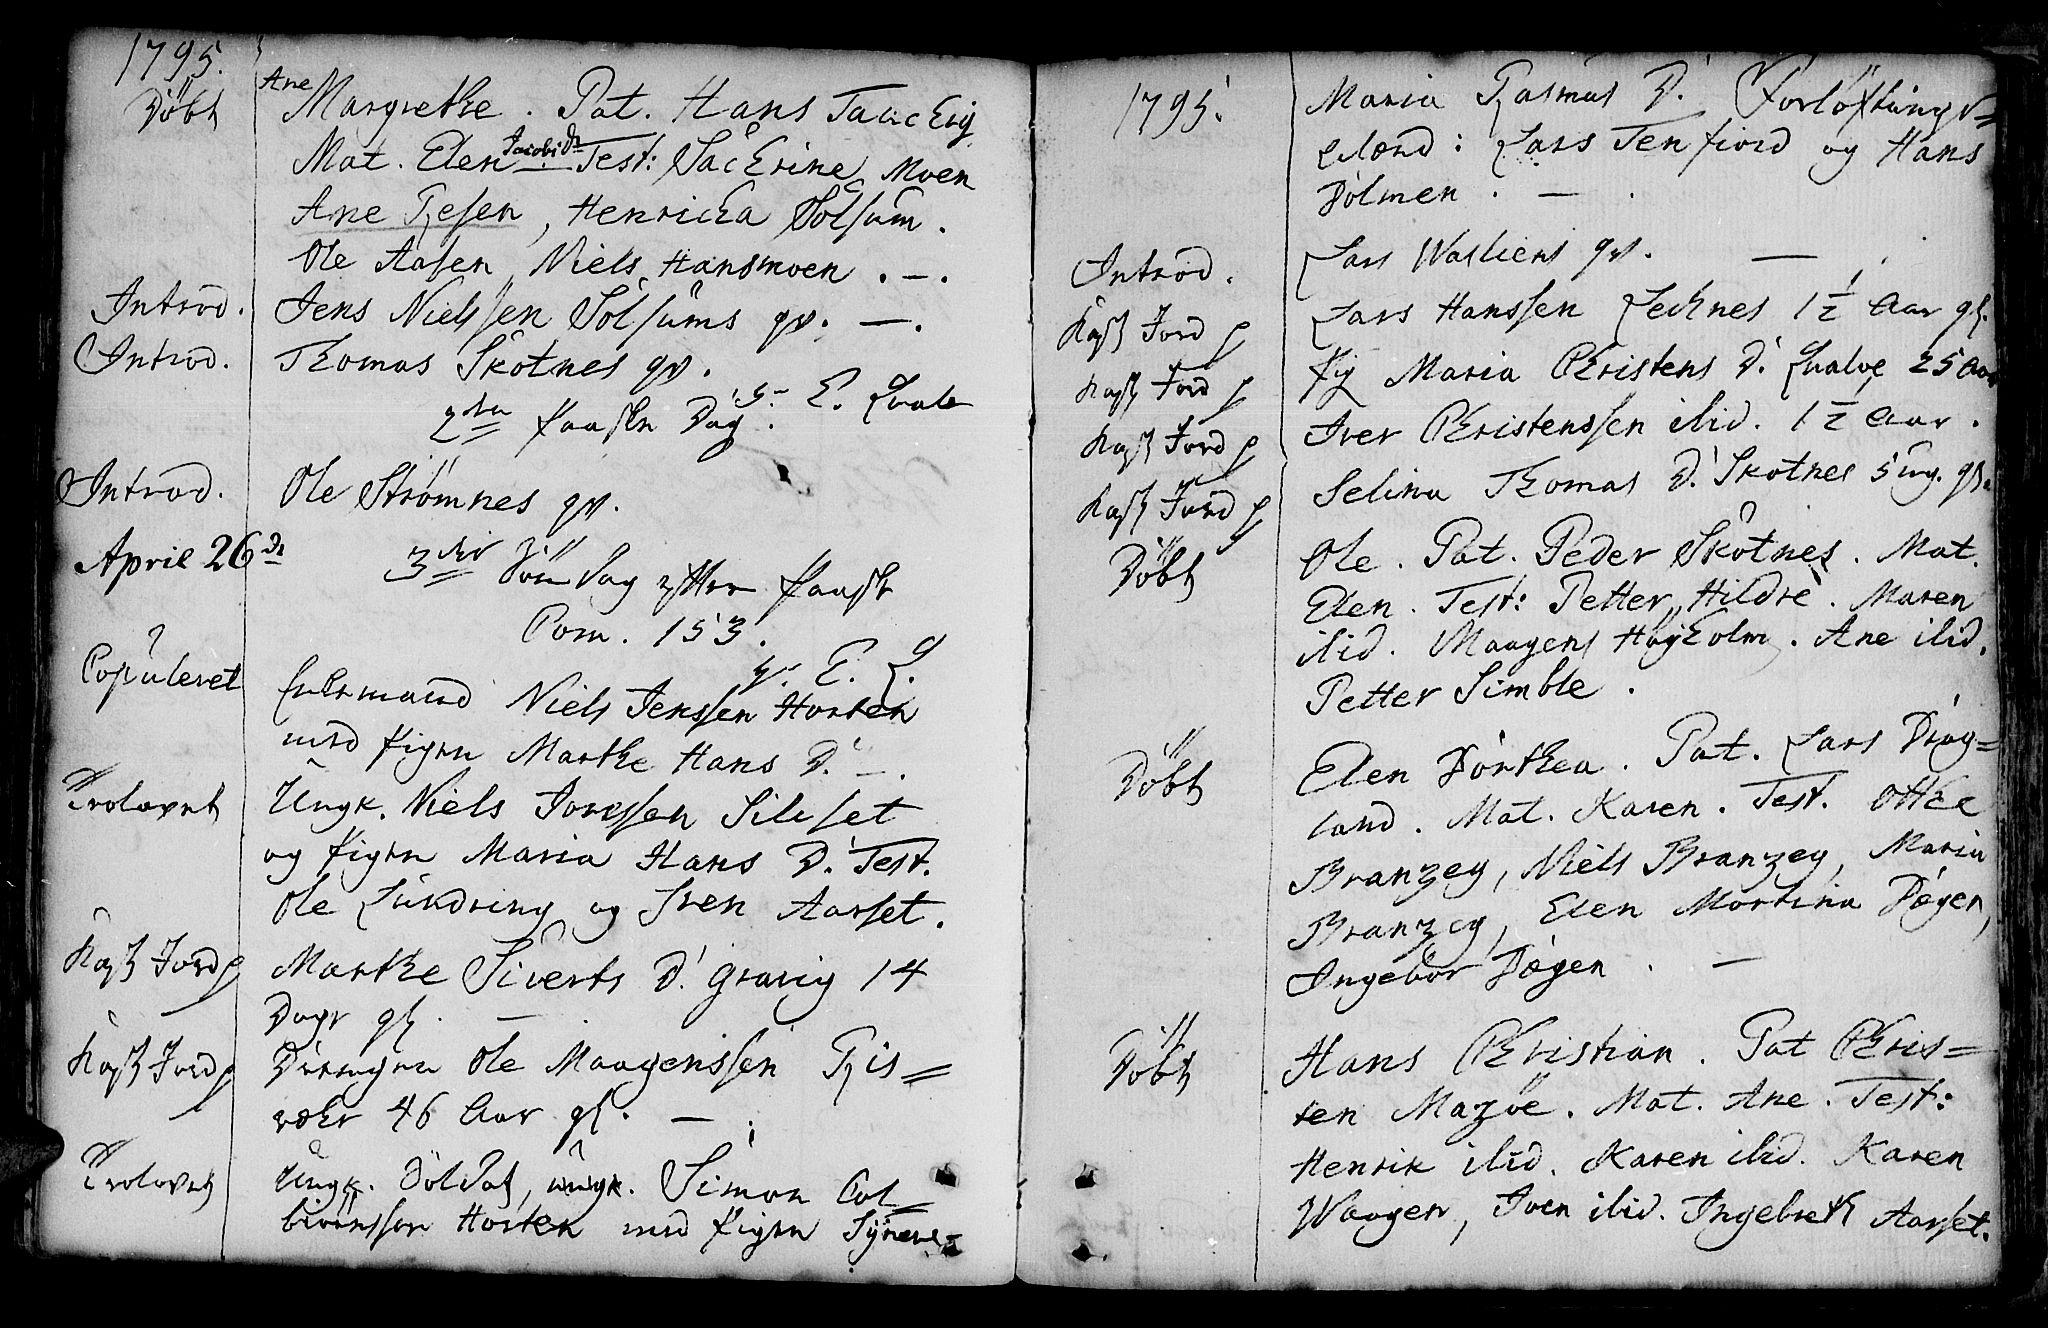 1795.
Döbt Ane Margrethe. Pat. Hans
Mat. Elen Jacobs Dr Test: Moen
Ane , Henricha Solsum.
Ole Aasen, Niels Hansmoen. —.
Introd. Jens Nielssen Solsums qv. —.
Introd. Thomas Skotnes qv.
2den Paaske Dag.
Introd. Ole Strömnes qv.
April 26de 3die Söndag efter Paaske
Pom. 153.
Copuleret Enkemand Niels Jenssen Horten
med Pigen Marthe Hans D. —.
Trolovet Ungk. Niels Silset
og Pigen Maria Hans D. Test.
Ole og Iven Aarset.
Kast Jord p Marthe Siverts D. 14
Dage gl. —
Kast Jord p Drengen Ole Maagenssen Fis=
46 Aar gl. — .
Trolovet Ungk. Soldat, ungk. Simon Col=
biörnssen Horten med Pigen
1795.
Maria Rasmus D. Forlöftnings=
mænd: Lars Tenfiord og Hans
Holmen. — .
Introd. Lars Wasliens qv. — .
Kast Jord p Lars Hanssen Lechnes 1½ Aar gl.
Kast Jord p Pig Maria Christens D. 25 Aar
Kast Jord p Iver Christenssen ibid. 1½ Aar.
Kast Jord p Selina Thomas D. Skotnes 5 ug. gl.
Döbt Ole. Pat. Peder Skotnes. Mat.
Elen. Test: Petter Hildre. Maren
ibid. Maagens Högholm. Ane ibid.
Petter Simble.
Döbt Elen Dorthea. Pat. Lars Drag=
land. Mat. Karen. Test. Otthe
Branzeg, Niels Branzeg, Maria
Branzeg, Elen Martina Hægen,
Ingebor Hægen. —
Döbt Hans Christian. Pat Chris=
ten Mazöe. Mat. Ane. Test:
Henrik ibid. Karen ibid. Karen
Waagen, Iven ibid. Ingebreth Aarset.